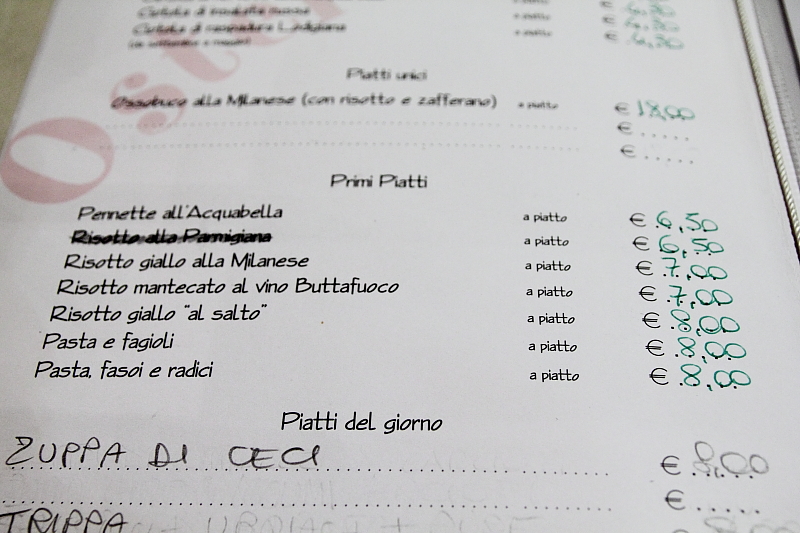 Ciotola di
a piatto
Ciotola di
a piatto
Piatti unici
Ossobuco alla Milanese (con risotto e zafferano) a piatto € 18,00
€ .....
€ .....
Oster
Primi Piatti
Pennette all'Acquabella a piatto € 6,50
Risotto alla Parmigiana a piatto € 6,50
Risotto giallo alla Milanese a piatto € 7,00
Risotto mantecato al vino Buttafuoco a piatto € 7,00
Risotto giallo "al salto" a piatto € 8,00
Pasta e fagioli a piatto € 8,00
Pasta, fasoi e radici a piatto € 8,00
Piatti del giorno
ZUPPA DI CECI € 8,00
€ .....
TRIPPA €